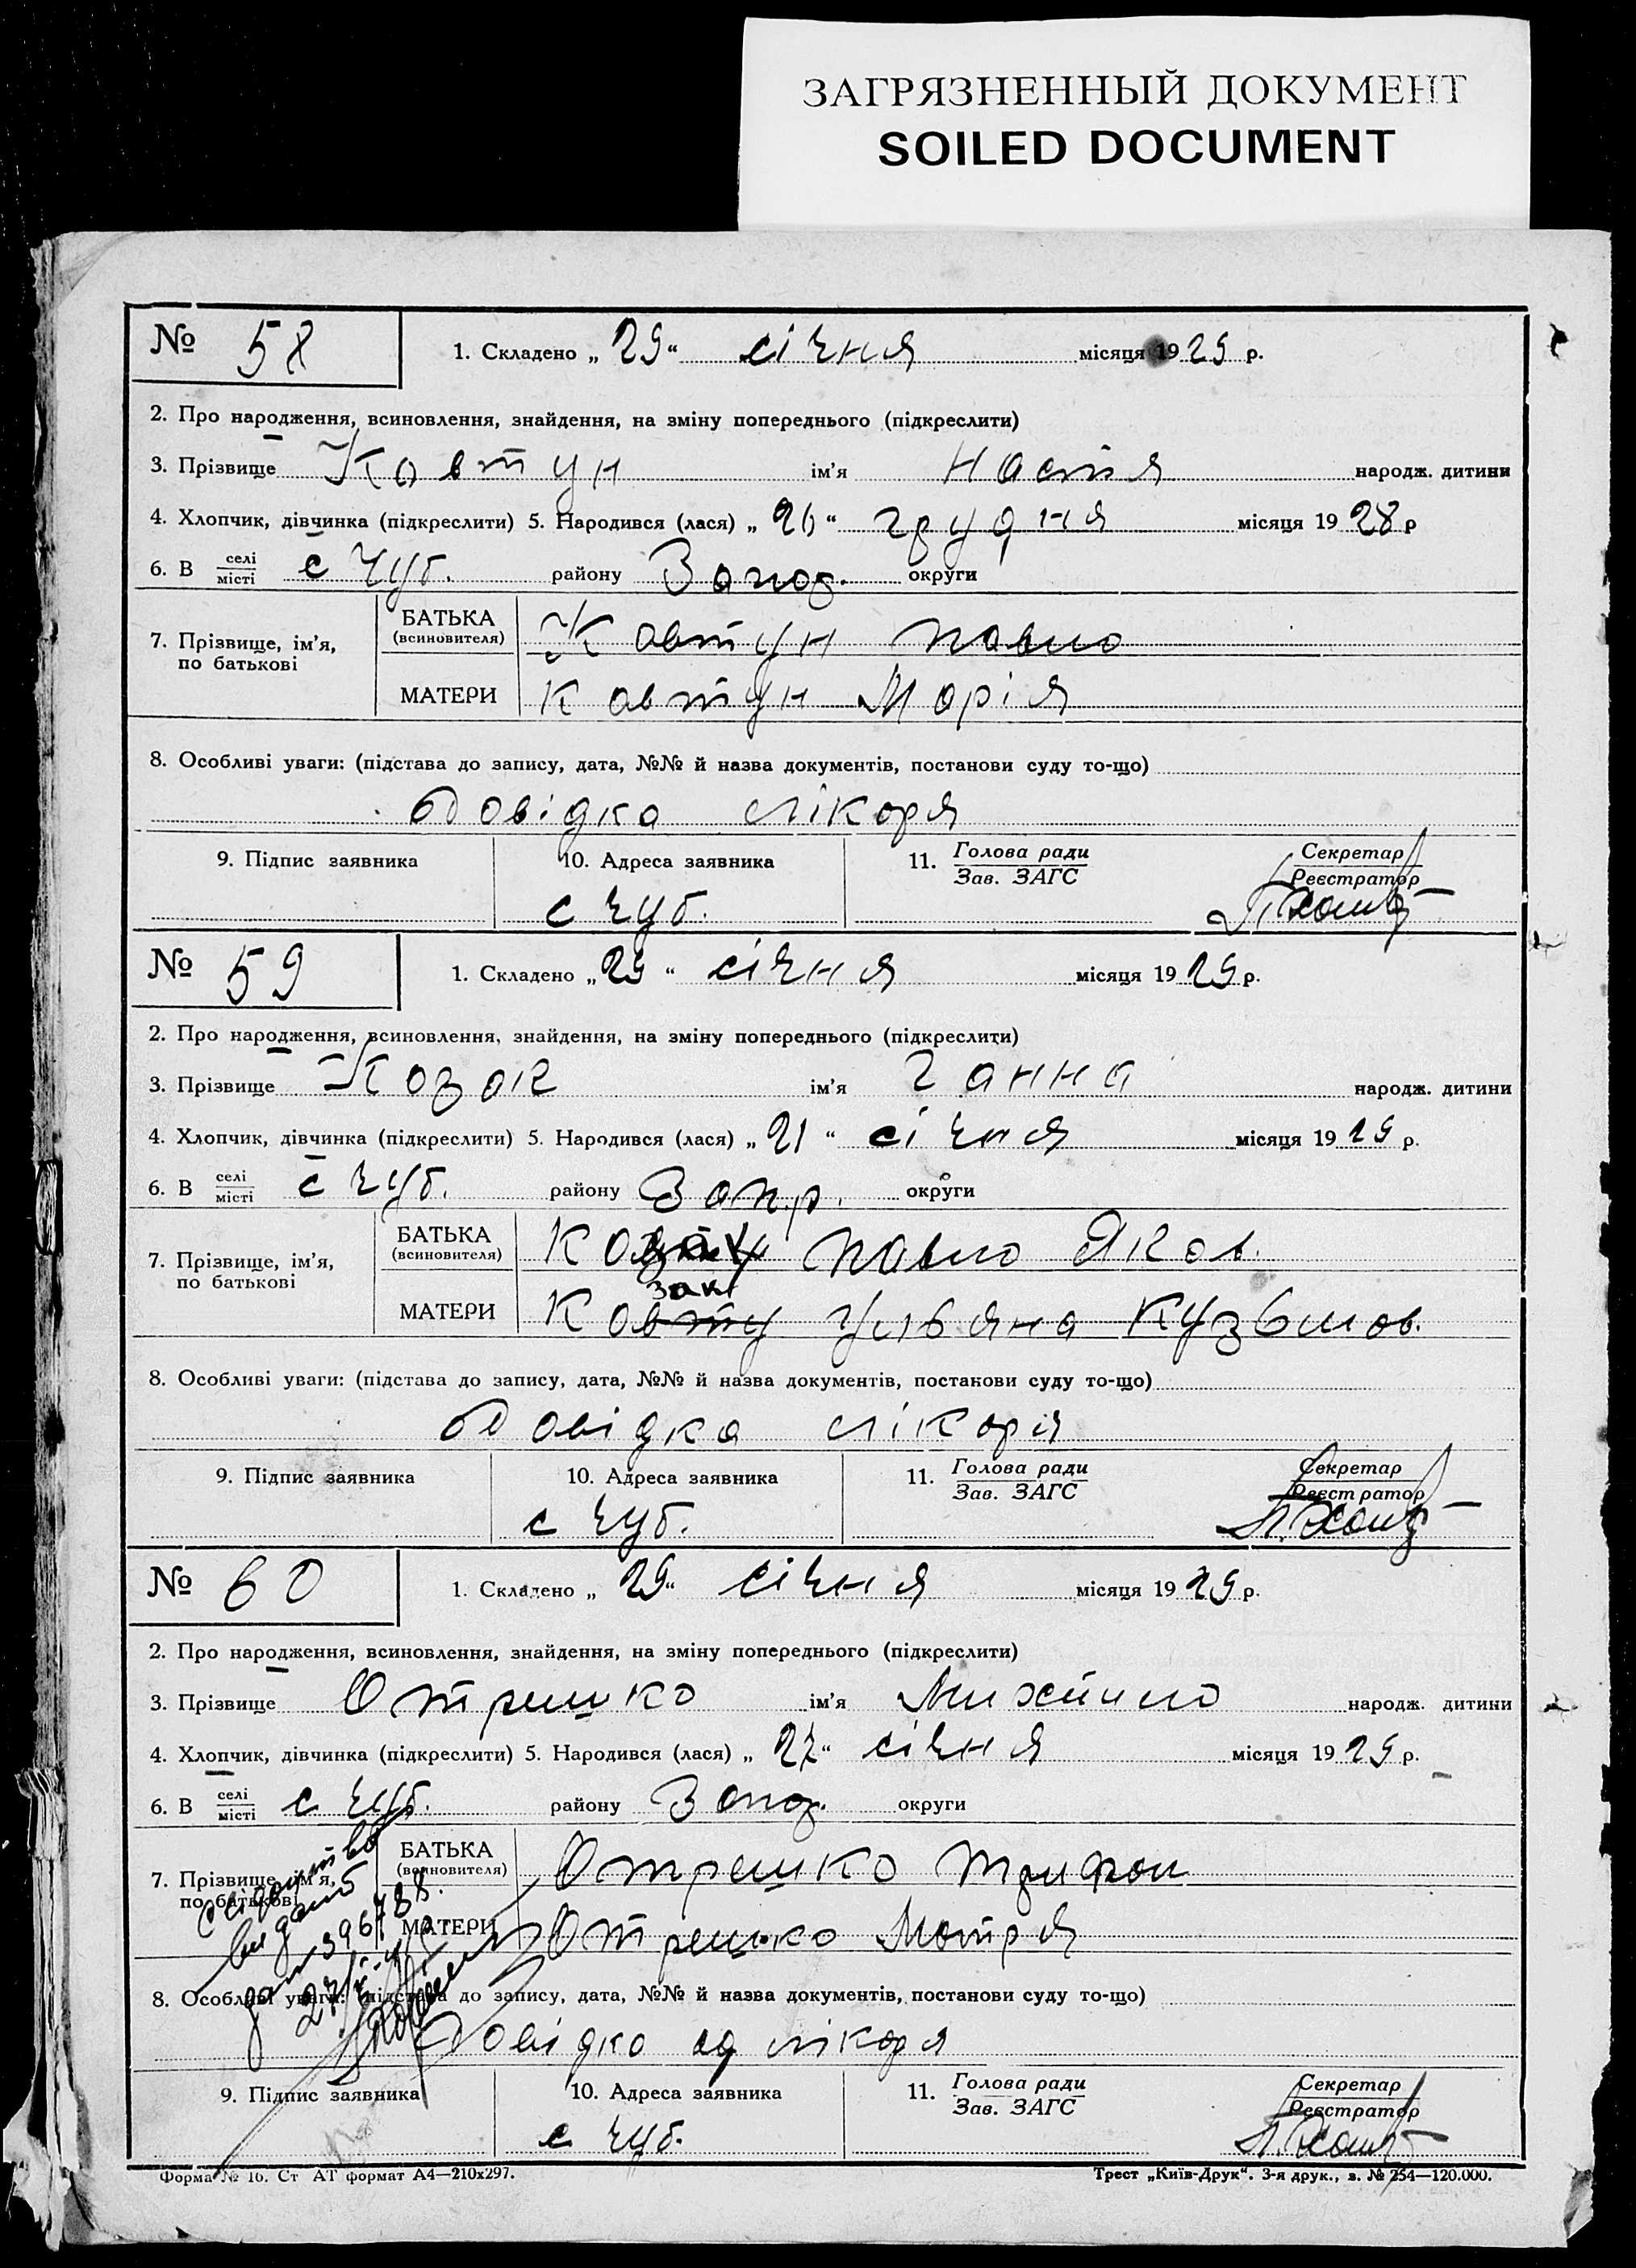 ЗАГРЯЗНЕННЫЙ ДОКУМЕНТ
SOILED DOCUMENT
№ 58 1. Складено „ 29 “ січня місяця 1929 р.
2. Про народження, всиновлення, знайдення, на зміну попереднього (підкреслити)
3. Прізвище Ковтун ім’я Настя народж. дитини
4. Хлопчик, дівчинка (підкреслити) 5. Народився (лася) „ 26 “ грудня місяця 1928 р
6. В селі/місті с Чуб. району Запор. округи
7. Прізвище, ім’я, по батькові
БАТЬКА (всиновителя) Ковтун Павло
МАТЕРИ Ковтун Марія
8. Особливі уваги: (підстава до запису, дата, №№ й назва документів, постанови суду то-що)
Довідка лікаря
9. Підпис заявника 10. Адреса заявника 11. Голова ради/Зав. ЗАГС Секретар/Реєстратор
с Чуб.
№ 59 1. Складено „ 29 “ січня місяця 1929 р.
2. Про народження, всиновлення, знайдення, на зміну попереднього (підкреслити)
3. Прізвище Козак ім’я Ганна народж. дитини
4. Хлопчик, дівчинка (підкреслити) 5. Народився (лася) „ 21 “ січня місяця 1929 р.
6. В селі/місті с Чуб. району Запр. округи
7. Прізвище, ім’я, по батькові
БАТЬКА (всиновителя) Козак Павло Яков.
зак
МАТЕРИ Ковту Ульяна Кузьмов.
8. Особливі уваги: (підстава до запису, дата, №№ й назва документів, постанови суду то-що)
Довідка лікаря
9. Підпис заявника 10. Адреса заявника 11. Голова ради/Зав. ЗАГС Секретар/Реєстратор
с Чуб.
№ 60 1. Складено „ 29 “ січня місяця 1929 р.
2. Про народження, всиновлення, знайдення, на зміну попереднього (підкреслити)
3. Прізвище Отришко ім’я Михайло народж. дитини
4. Хлопчик, дівчинка (підкреслити) 5. Народився (лася) „ 27 “ січня місяця 1929 р.
6. В селі/місті с Чуб. району Запор. округи
7. Прізвище, ім’я, по батькові
БАТЬКА (всиновителя) Отришко Трифон
МАТЕРИ Отришко Мотря
8. Особливі уваги: (підстава до запису, дата, №№ й назва документів, постанови суду то-що)
Довідка од лікаря
9. Підпис заявника 10. Адреса заявника 11. Голова ради/Зав. ЗАГС Секретар/Реєстратор
с Чуб.
Форма № 16. Ст АТ формат А4—210х297. Трест „Київ-Друк“. 3-я друк., з. № 254—120.000.